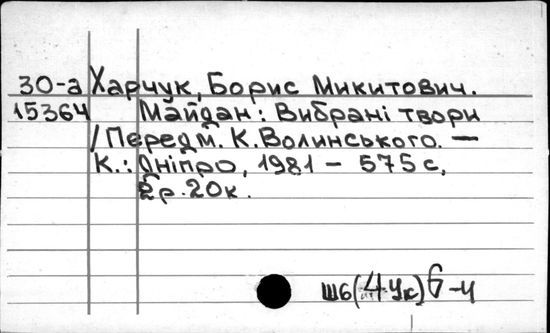 30-а Харчук, Борис Микитович.
15364 Майдан: Вибрані твори
/Передм. К.Волинського. —
К.: Дніпро, 1981 — 575 с,
2р.20к.
Ш6(4Ук)6-4